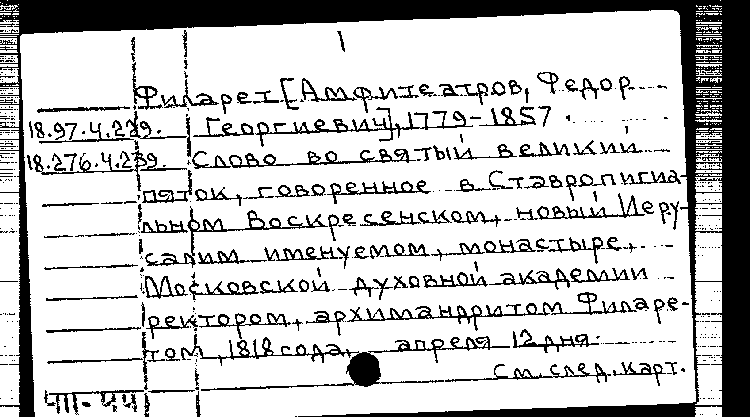 1
Филарет [Амфитеатров, Федор
18.97.4.239. Георгиевич], 1779-1857.
18.276.4.239. Слово во святый великий
пяток, говоренное в Ставропигиа-
льном Воскресенском, новый Иеру-
салим именуемом, монастыре,
Московской духовной академии
ректором, архимандритом Филаре-
том, 1818 года, апреля 12 дня.
См. след. карт.